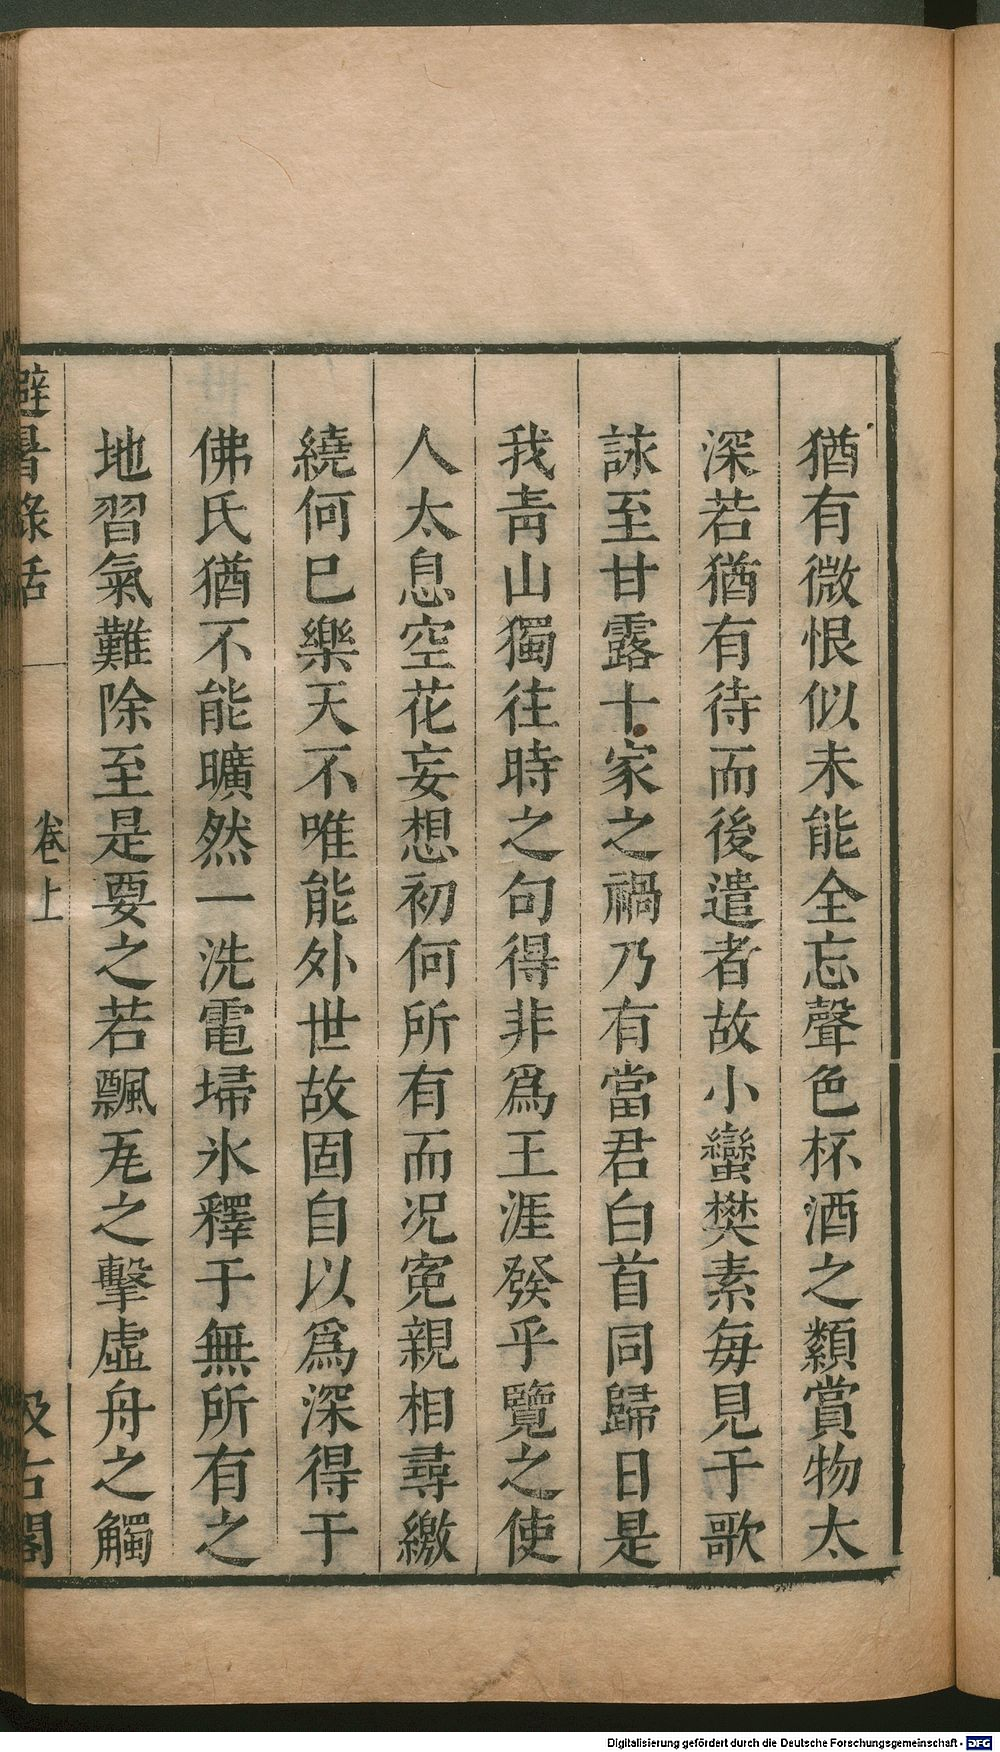 猶有微恨似未能全忘聲色杯酒之類賞物太
深若猶有待而後遣者故小蠻樊素每見于歌
詠至甘露十家之禍乃有當君白首同歸日是
我青山獨往時之句得非爲王涯發乎覽之使
人太息空花妄想初何所有而况冤親相尋繳
繞何已樂天不唯能外世故固自以爲深得于
佛氏猶不能曠然一洗電埽氷釋于無所有之
地習氣難除至是要之若飄瓦之擊虛舟之觸
避暑錄話
卷上
汲古閣
Digitalisierung gefördert durch die Deutsche Forschungsgemeinschaft - DFG